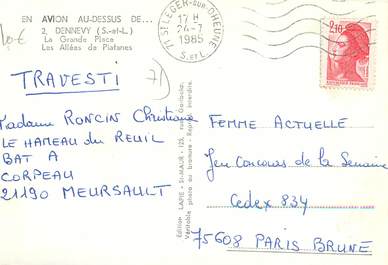 EN AVION AU-DESSUS DE...
2, DENNEVY (S.-et-L.)
La Grande Place
Les Allées de Platanes
71 ST LEGER-SUR-DHEUNE
17 H
24-7
1985
S.-et-L.
2,10
TRAVESTI
Madame RONCIN Christiane
LE HAMEAU du REUIL
BAT A
CORPEAU
21190 MEURSAULT
Edition LAPIE - St-MAUR - 123, rue Garibaldi.
Véritable photo au bromure - Reprod. interdite.
FEMME ACTUELLE
Jeu Concours de la Semaine
Cedex 834
75608 PARIS BRUNE